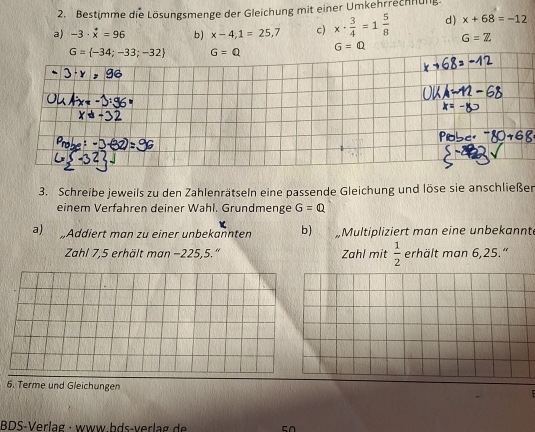 2. Bestimme die Lösungsmenge der Gleichung mit einer Umkehrrechnung.
a) −3 · x = 96
b) x − 4,1 = 25,7
c) x · 3/4 = 1 5/8
d) x + 68 = −12
G = {−34; −33; −32}
G = ℚ
G = ℚ
G = ℤ
-3·x = 96
x = -32
Probe: -3·(-32) = 96
L={-32} ✓
x+68=-12
-12-68
x= -80
Probe: -80+68
✓
3. Schreibe jeweils zu den Zahlenrätseln eine passende Gleichung und löse sie anschließen
einem Verfahren deiner Wahl. Grundmenge G = ℚ
x
a) „Addiert man zu einer unbekannten
Zahl 7,5 erhält man −225,5."
b) „Multipliziert man eine unbekannte
Zahl mit 1/2 erhält man 6,25."
6. Terme und Gleichungen
BDS-Verlag · www.bds-verlag.de
50